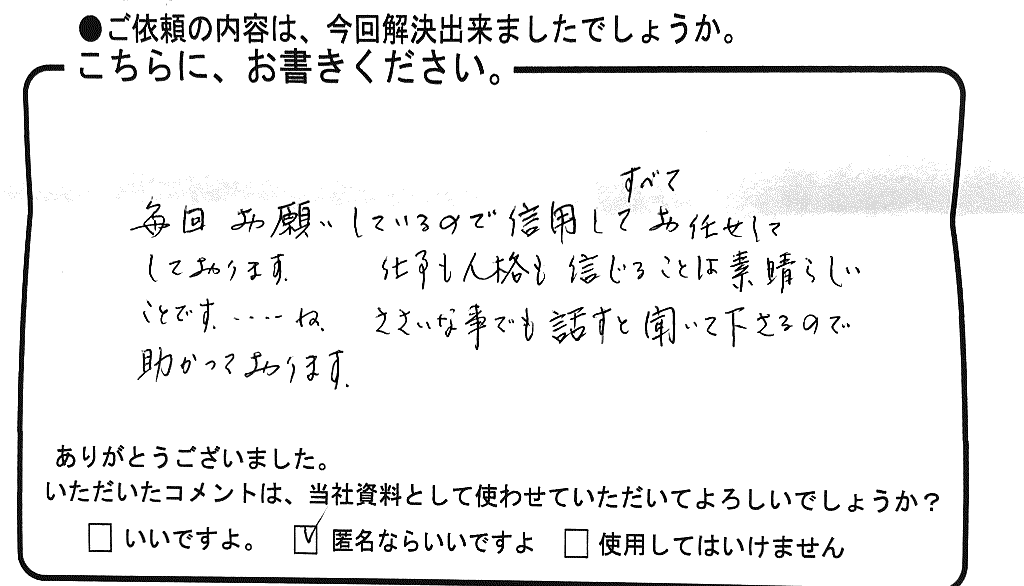 ●ご依頼の内容は、今回解決出来ましたでしょうか。
こちらに、お書きください。
すべて
毎回 お願いしているので信用してお任せして
しております. 仕事も人格も信じることは素晴らしい
ことです.‥‥ね. ささいな事でも話すと聞いて下さるので
助かっております.
ありがとうございました。
いただいたコメントは、当社資料として使わせていただいてよろしいでしょうか？
いいですよ。 匿名ならいいですよ 使用してはいけません